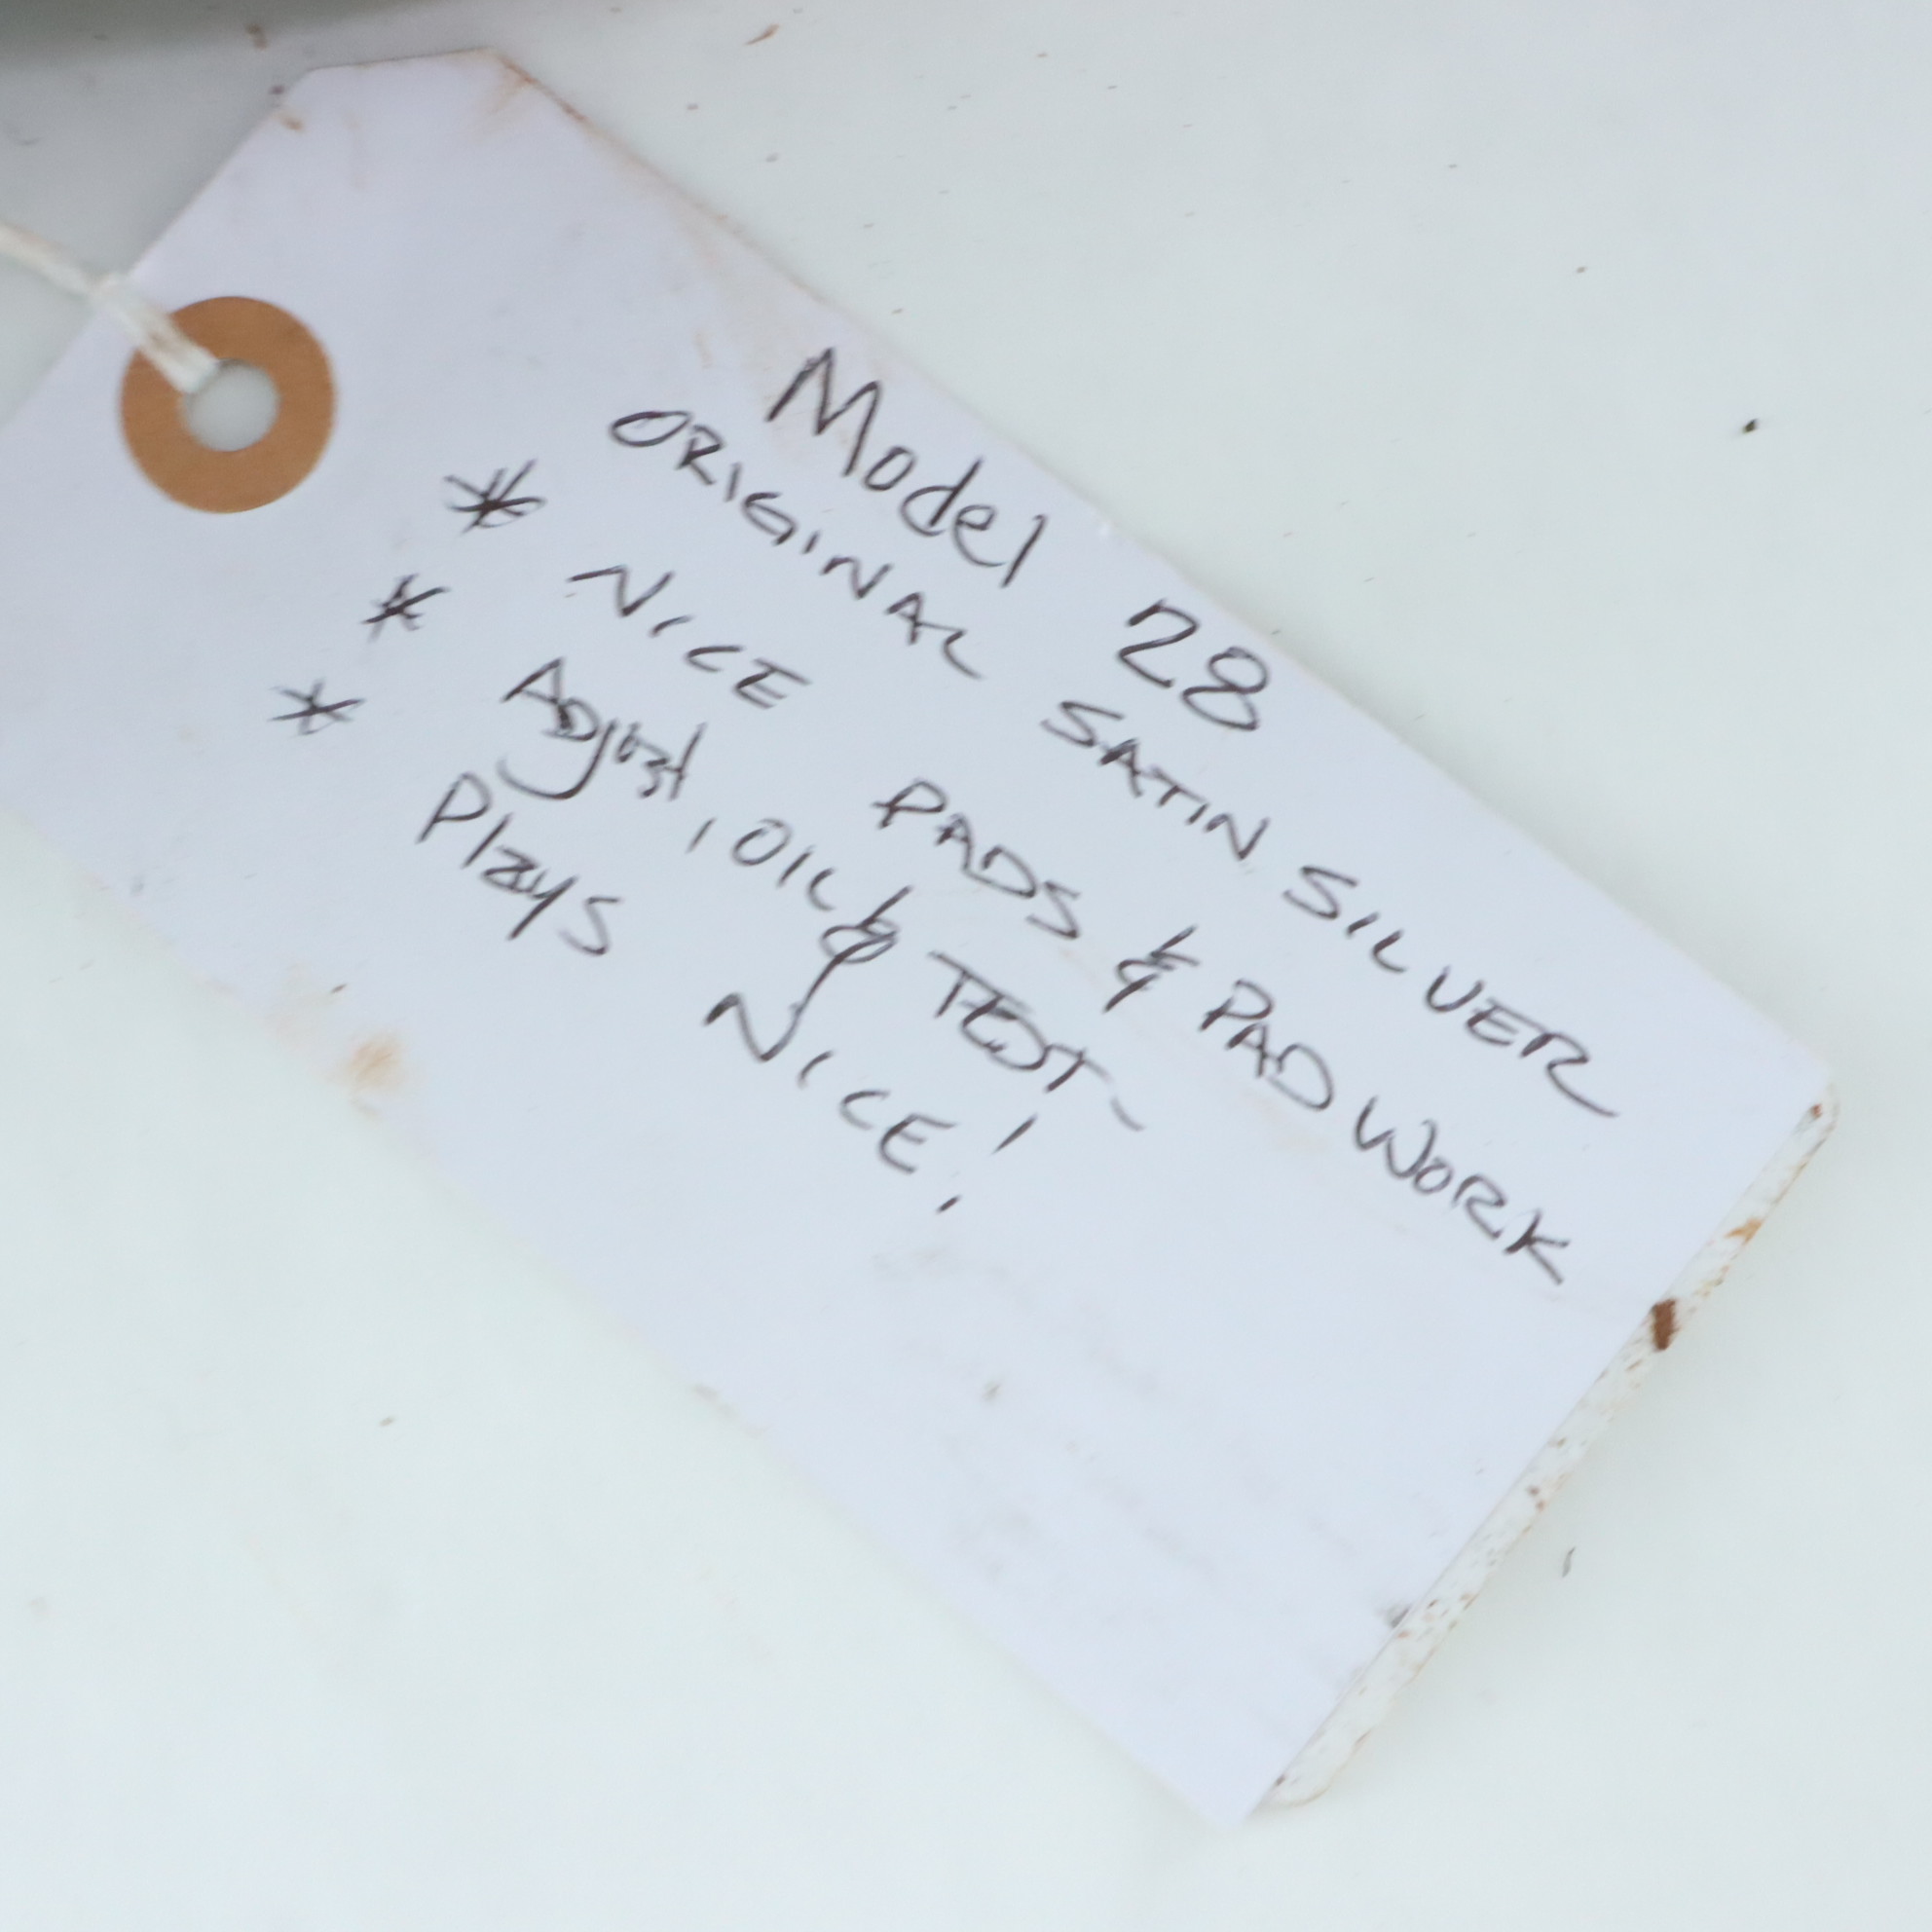 Model 28
ORIGINAL SATIN SILVER
* NICE PADS & PAD WORK
* ADjust, OIL & TEST-
* Plays NICE!